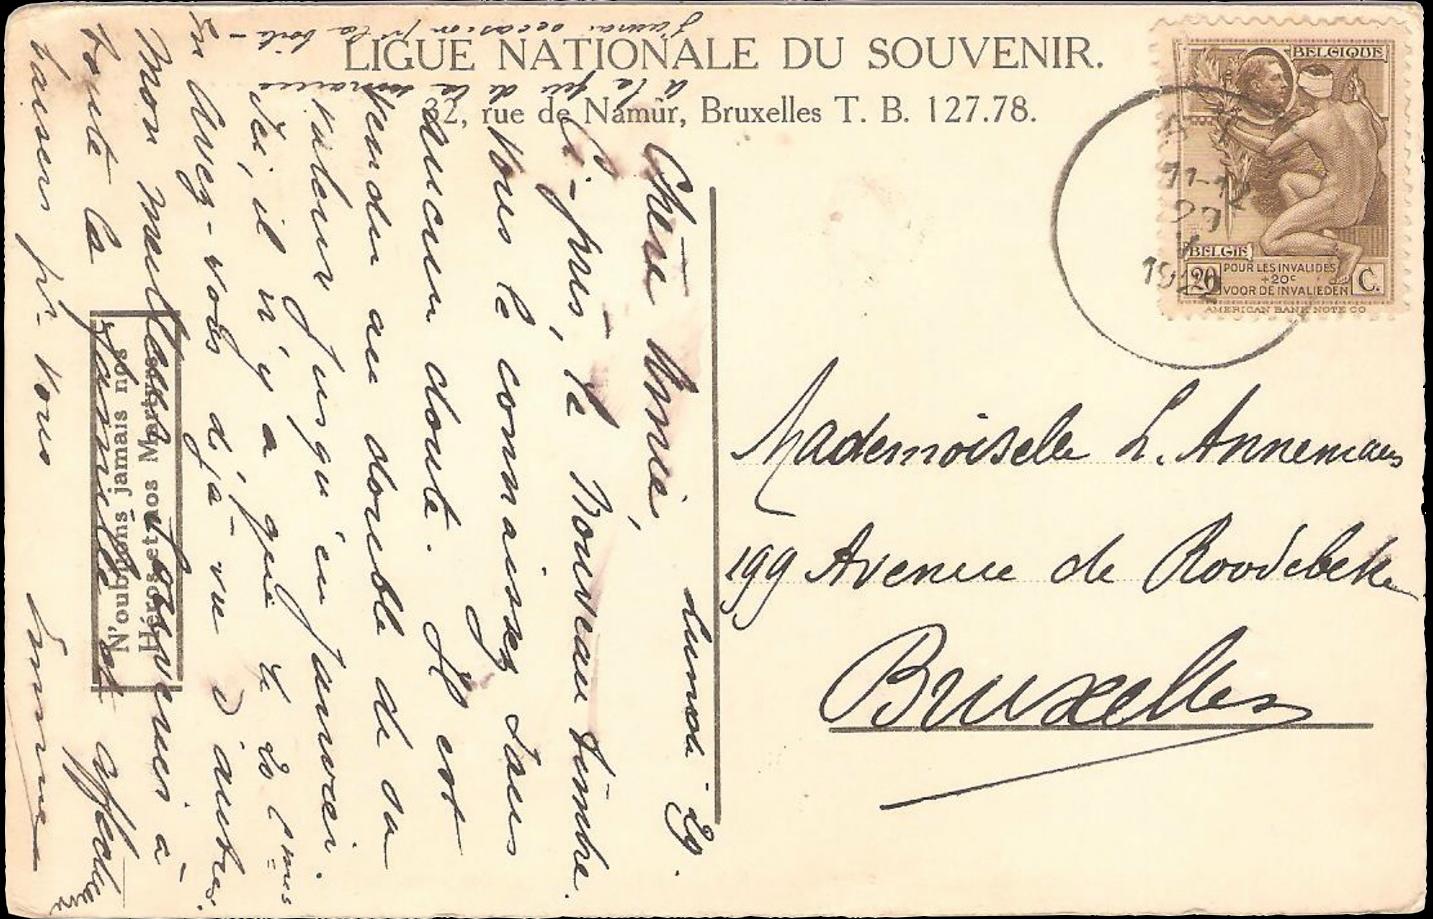 LIGUE NATIONALE DU SOUVENIR.
32, rue de Namur, Bruxelles T. B. 127.78.
BELGIQUE
BELGIE
POUR LES INVALIDES
20 +20c C.
VOOR DE INVALIEDEN
AMERICAN BANK NOTE CO
11-12
1922
Mademoiselle L. Annemans
199 Avenue de Roodebeke
Bruxelles
lundi 29.
Chère Amie,
Ci-joint, le nouveau timbre.
Vous le connaissez sans
aucun doute. Il est
vendu au double de sa
valeur jusqu'en janvier.
Ici, il n'y a que le 20 cmes
En avez-vous déjà vu d'autres
Mon meilleur souvenir à
toute la famille et affectueux
baisers pr. vous Emma
J'aurai occasion
à la fin de la semaine
N'oublions jamais nos
Héros et nos Martyrs